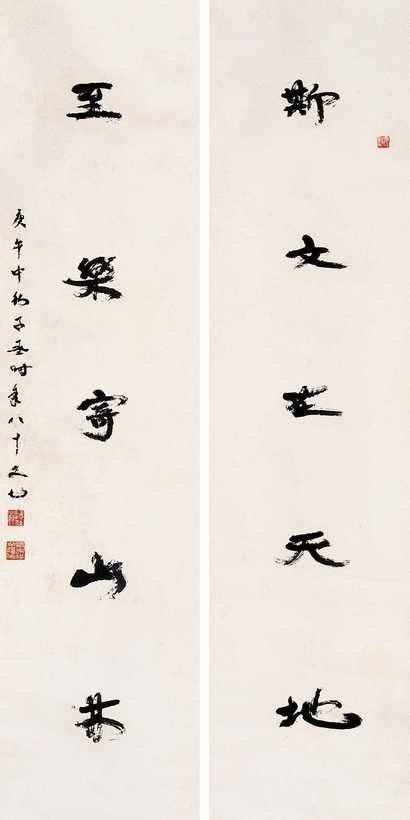 斯文在天地
至樂寄山林
庚午中秋子丞时年八十又